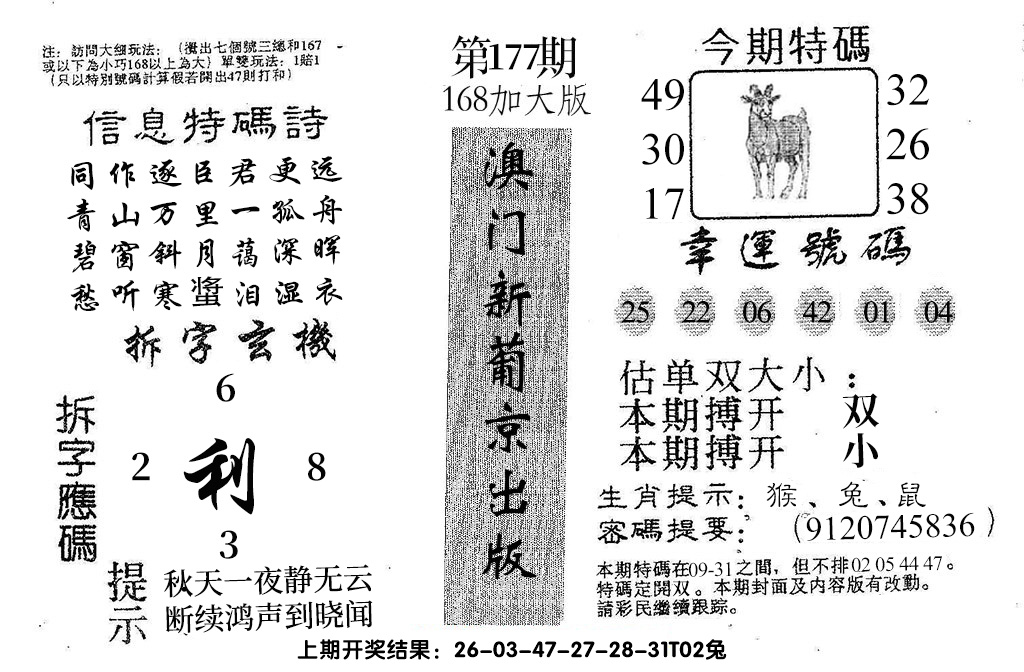 注：訪問大細玩法：（攪出七個號三總和167
或以下為小巧168以上為大）單雙玩法：1賠1
（只以特別號碼計算假若開出47則打和）
信息特碼詩
同作逐臣君更远
青山万里一孤舟
碧窗斜月蔼深晖
愁听寒螀泪湿衣
拆字玄機
拆字應碼
6
2 利 8
3
提示
秋天一夜静无云
断续鸿声到晓闻
第177期
168加大版
澳门新葡京出版
今期特碼
49 32
30 26
17 38
幸運號碼
25 22 06 42 01 04
估单双大小：
本期搏开 双
本期搏开 小
生肖提示：猴、兔、鼠
密碼提要：（9120745836）
本期特碼在09-31之間，但不排02 05 44 47。
特碼定開双。本期封面及内容版有改動。
請彩民繼續跟踪。
上期开奖结果：26-03-47-27-28-31T02兔